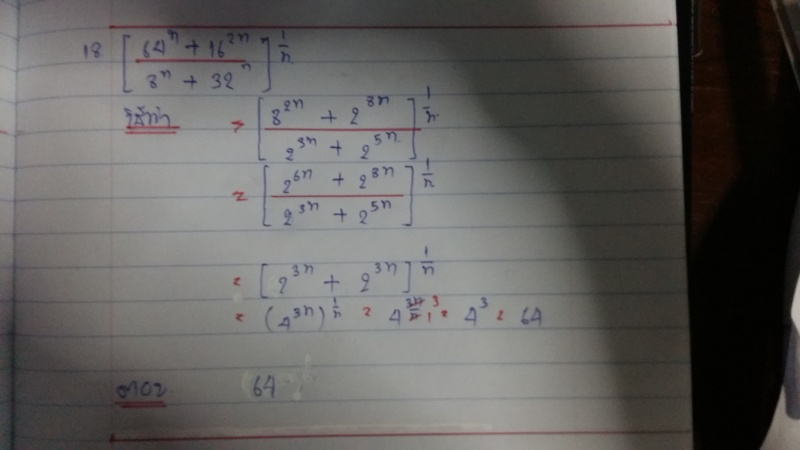 18 [ (64ⁿ + 16²ⁿ) / (8ⁿ + 32ⁿ) ]^(1/n)
วิธีทำ = [ (8²ⁿ + 2⁸ⁿ) / (2³ⁿ + 2⁵ⁿ) ]^(1/n)
= [ (2⁶ⁿ + 2⁸ⁿ) / (2³ⁿ + 2⁵ⁿ) ]^(1/n)
= [ 2³ⁿ + 2³ⁿ ]^(1/n)
= (4³ⁿ)^(1/n) = 4^(3n/n) = 4³ = 64
ตอบ 64